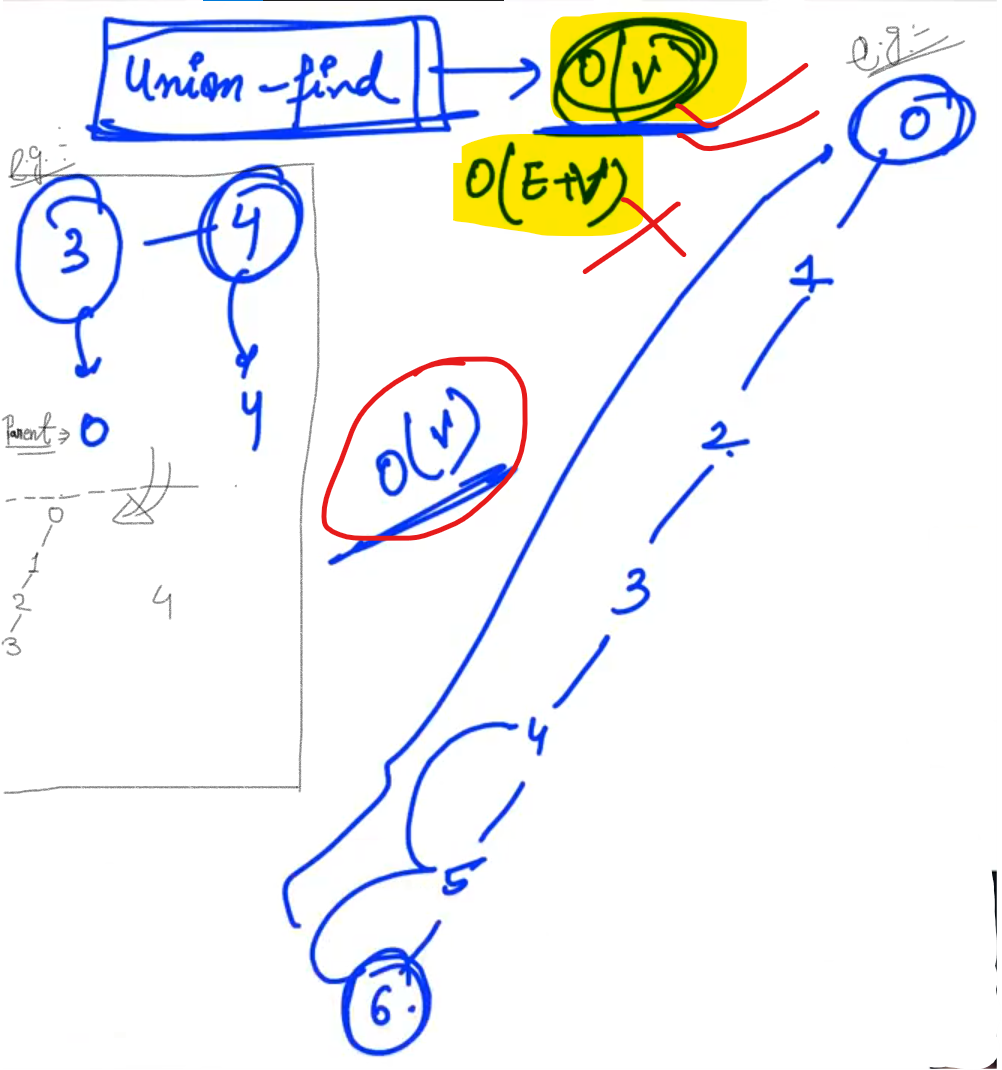 Union-find → O(V)
e.g:-
O(E+V)
e.g.:-
3 — 4
Parent ⇒ 0 4
0
1
2
3
4
O(V)
0
1
2
3
4
5
6